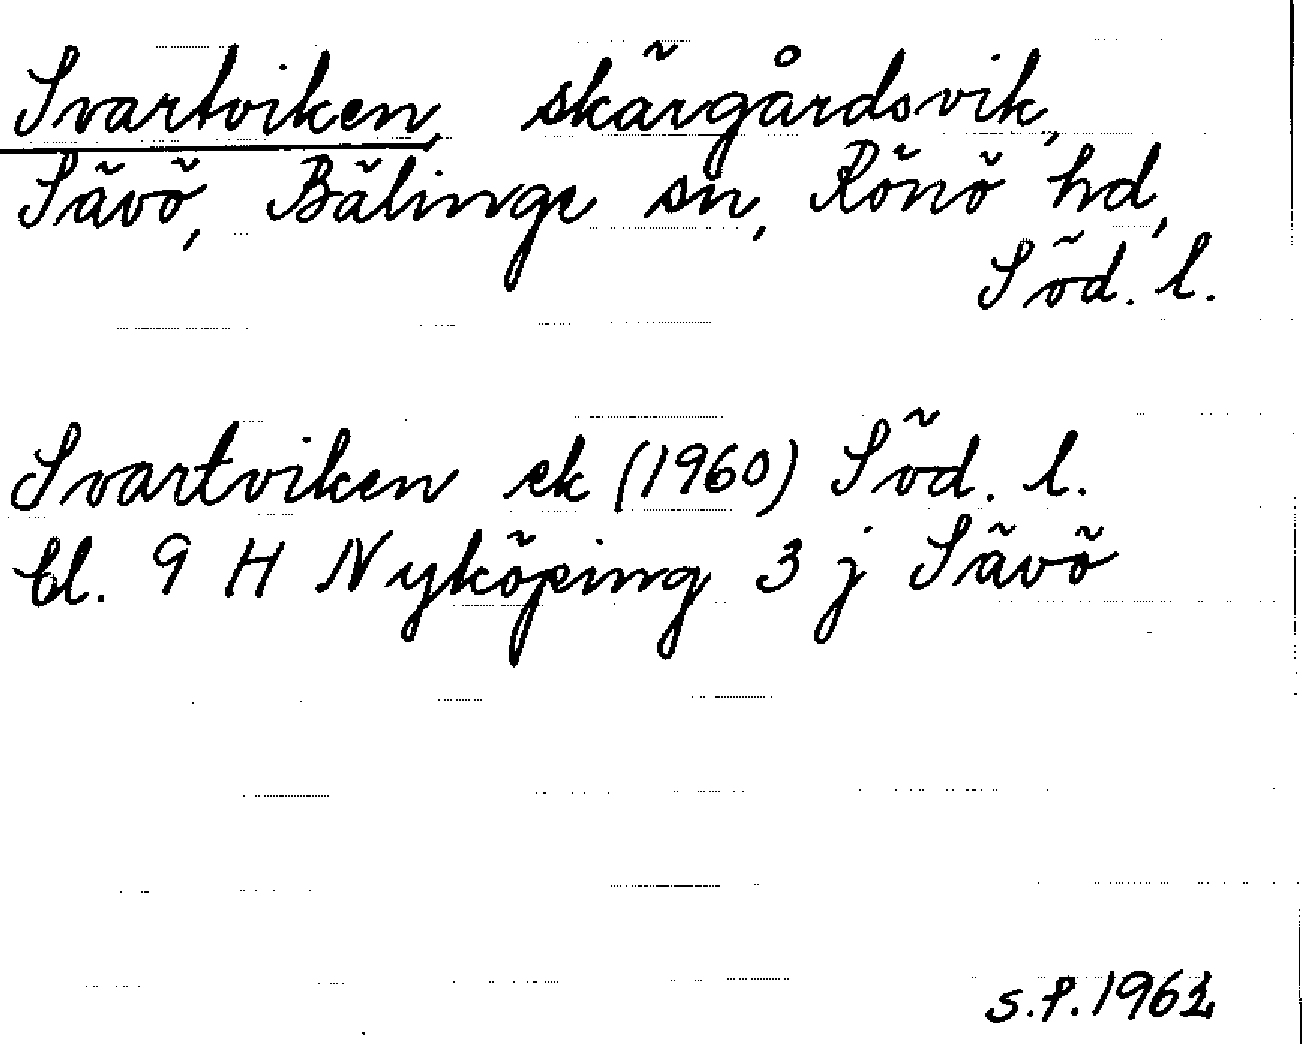 Svartviken, skärgårdsvik,
Sävö, Bälinge sn, Rönö hd,
Söd. l.
Svartviken ek (1960) Söd. l.
bl. 9 H Nyköping 3 j Sävö
s.P.1961